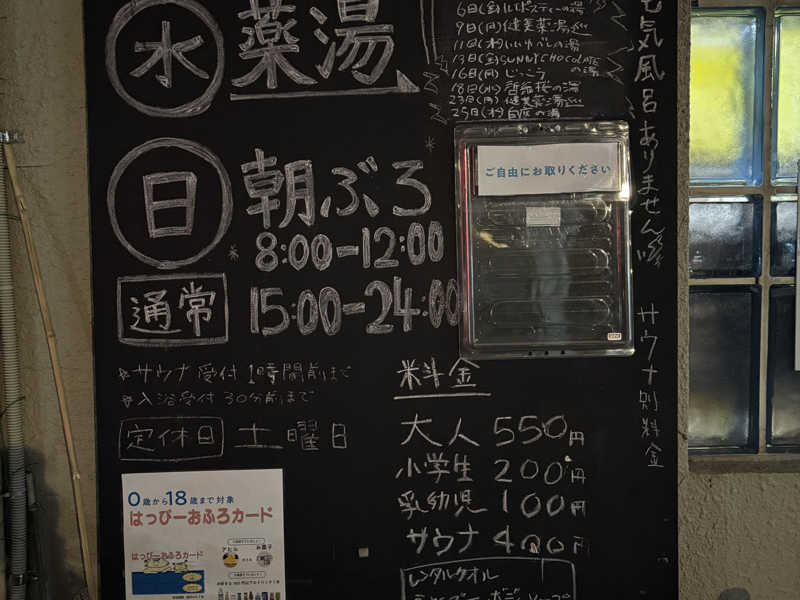 水 薬湯
9日(月)健美薬湯
11日(水)いいゆべしの湯
13日(金)SUNNY CHOCOLATEの湯
16日(月)じっこう
23日(月)健美薬湯
日 朝ぶろ
8:00-12:00
通常 15:00-24:00
サウナ受付 1時間前まで
入浴受付 30分前まで
定休日 土曜日
0歳から18歳まで対象
はっぴーおふろカード
はっぴーおふろカード
アヒル お菓子
ご自由にお取りください
料金
大人 550円
小学生 200円
乳幼児 100円
サウナ 400円
レンタルタオル
電気風呂ありません
サウナ別料金